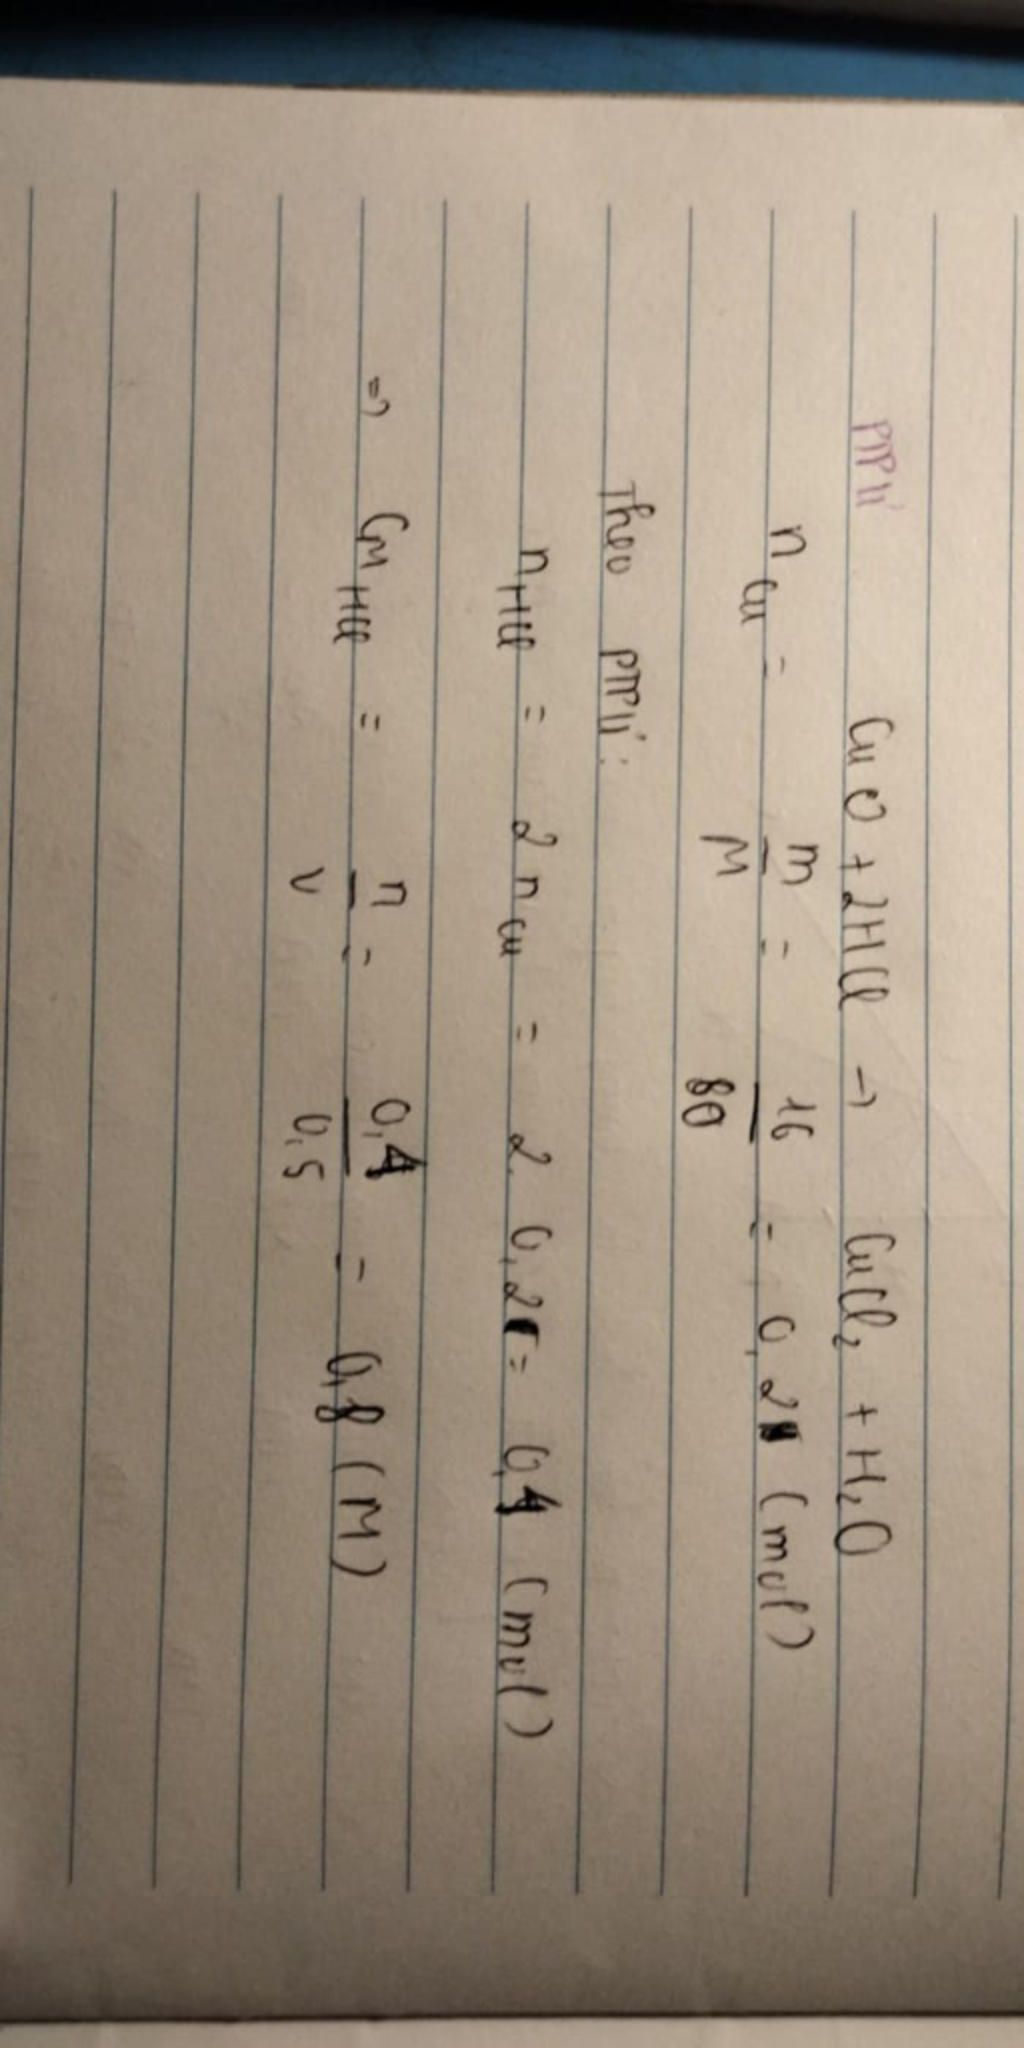 PTPƯ CuO + 2HCl → CuCl₂ + H₂O
n Cu = m/M = 16/80 = 0,2 (mol)
Theo PTPƯ:
n HCl = 2 n Cu = 2. 0,2 = 0,4 (mol)
=> CM HCl = n/V = 0,4/0,5 = 0,8 (M)